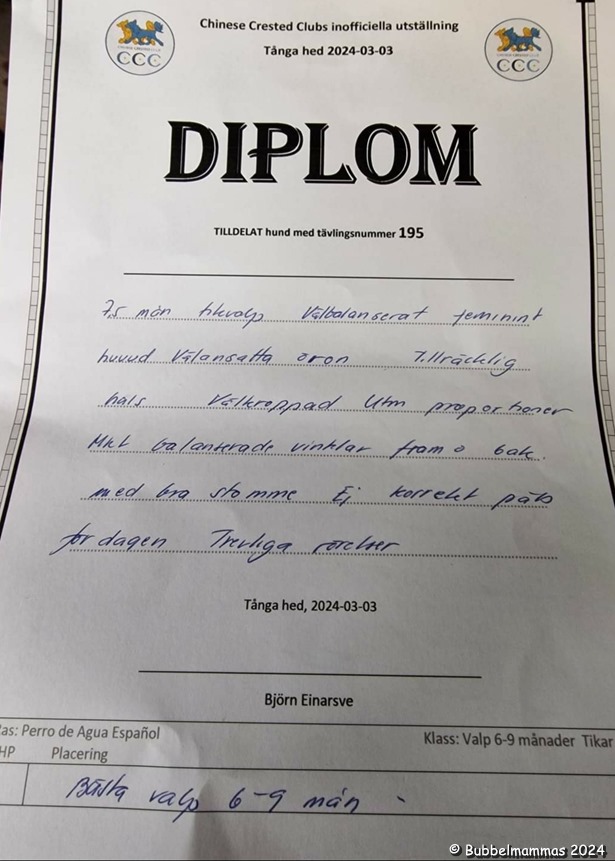 Chinese Crested Clubs inofficiella utställning
Tånga hed 2024-03-03
CHINESE CRESTED CLUB
CCC
CHINESE CRESTED CLUB
CCC
DIPLOM
TILLDELAT hund med tävlingsnummer 195
7,5 mån tikvalp Välbalanserat feminint
huvud Välansatta öron Tillräcklig
hals Välkroppad Utm proportioner
Mkt balanserade vinklar fram o bak.
med bra stomme Ej korrekt päls
för dagen Trevliga rörelser
Tånga hed, 2024-03-03
Björn Einarsve
Ras: Perro de Agua Español
Klass: Valp 6-9 månader Tikar
HP Placering
Bästa valp 6-9 mån -
© Bubbelmammas 2024